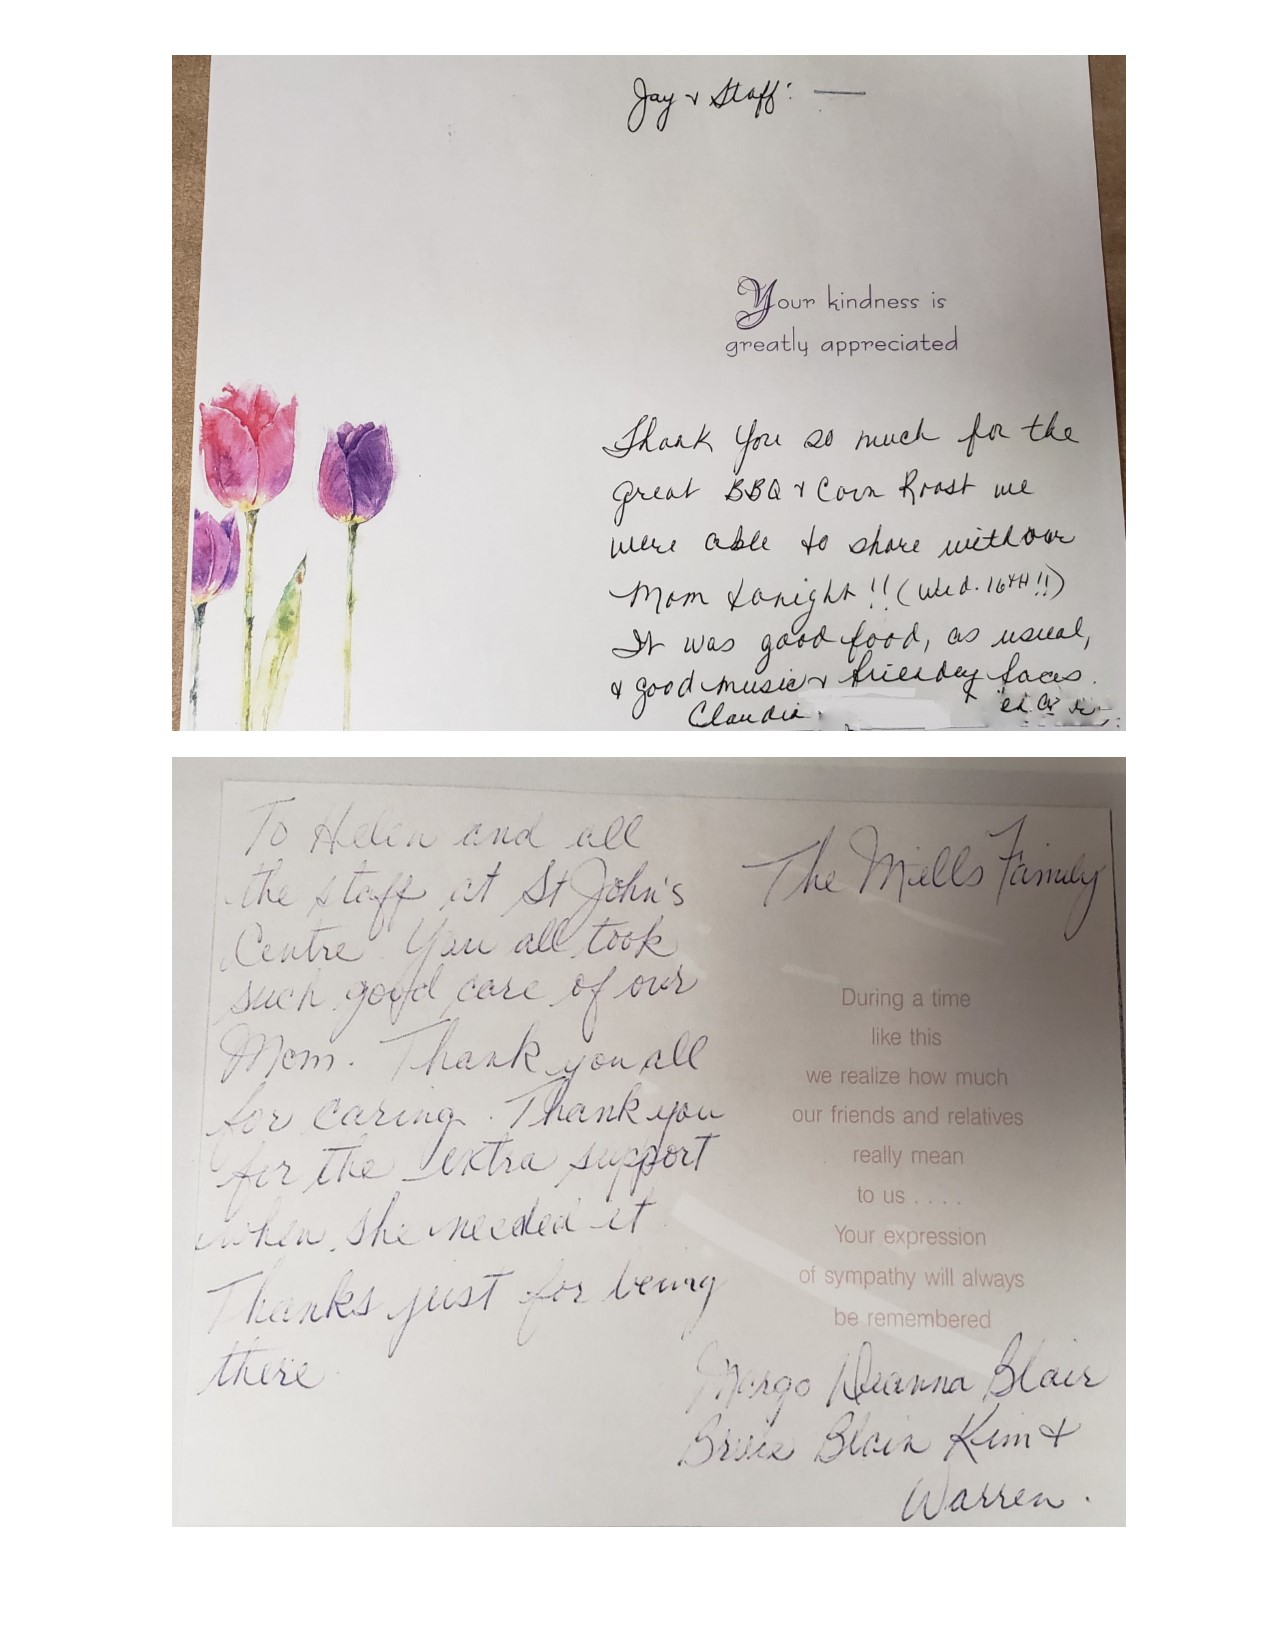 Jay & Staff: —
Your kindness is
greatly appreciated
Thank You so much for the
great BBQ & Corn Roast we
were able to share with our
Mom tonight!! (Wed. 16TH!!)
It was good food, as usual,
& good music & friendly faces.
Claudia
To Helen and all
the staff at St John's
Centre. You all took
such good care of our
Mom. Thank you all
for caring. Thank you
for the extra support
when she needed it
Thanks just for being
there
The Mills Family
During a time
like this
we realize how much
our friends and relatives
really mean
to us . . . .
Your expression
of sympathy will always
be remembered
Margo Deanna Blair
Blain Kim &
Warren.